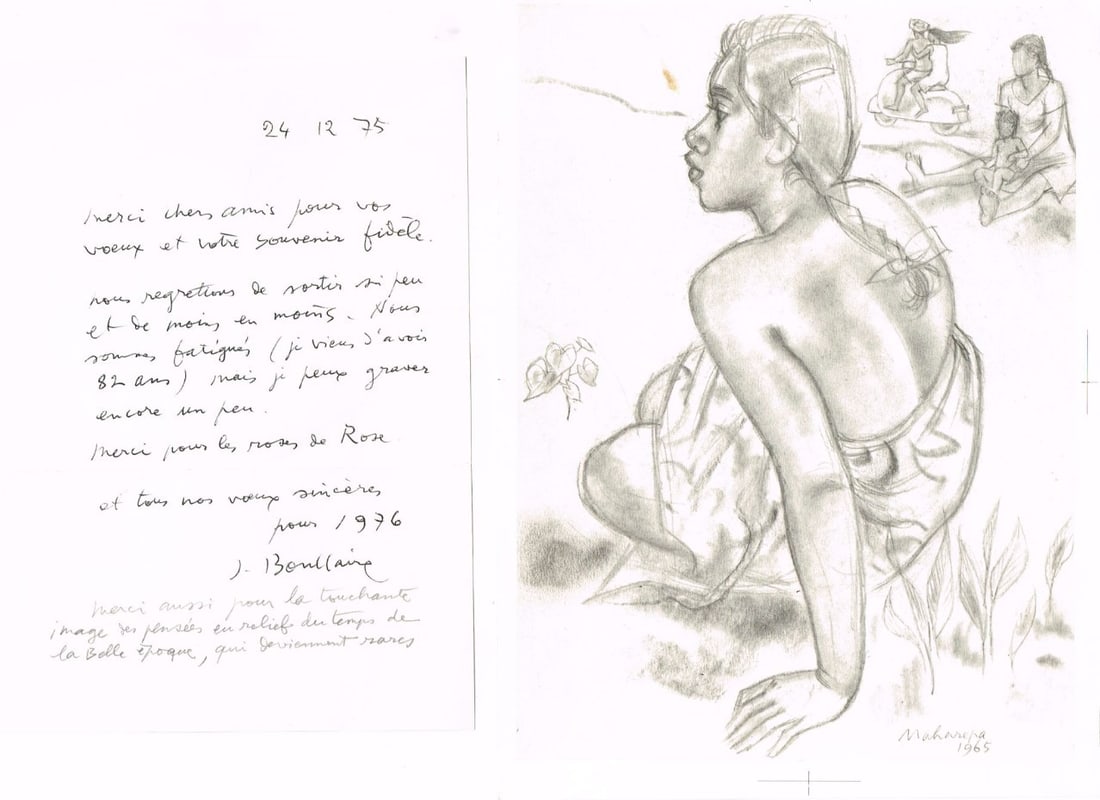 24 12 75
merci chers amis pour vos
voeux et votre souvenir fidèle.
nous regrettons de sortir si peu
et de moins en moins. Nous
sommes fatigués (je viens d'avoir
82 ans) mais je peux graver
encore un peu.
Merci pour les roses de Rose
et tous nos voeux sincères
pour 1976
J. Boullaire
Merci aussi pour la touchante
image des pensées en relief du temps de
la Belle époque, qui deviennent rares
Maharepa
1965